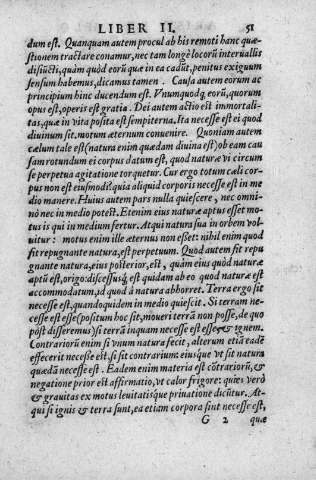 LIBER II. 51
dum est. Quanquam autem procul ab his remoti hanc quæ-
stionem tractare conamur, nec tam longè locorũ interuallis
disiũcti, quàm quòd eorũ quæ in ea cadũt, penitus exiguum
sensum habemus, dicamus tamen. Causa autem eorum ac
principium hinc ducendum est. Vnumquodq̃ eorũ, quorum
opus est, operis est gratia. Dei autem actio est immortali-
tas, quæ in vita posita est sempiterna. Ita necesse est ei quod
diuinum sit, motum æternum conuenire. Quoniam autem
cælum tale est (natura enim quædam diuina est) ob eam cau
sam rotundum ei corpus datum est, quod naturæ vi circum
se perpetua agitatione torquetur. Cur ergo totum cæli cor-
pus non est eiusmodi? quia aliquid corporis necesse est in me
dio manere. Huius autem pars nulla quiescere, nec omni-
nò nec in medio potest. Etenim eius naturæ aptus esset mo-
tus is qui in medium fertur. Atqui natura sua in orbem vol-
uitur: motus enim ille æternus non esset: nihil enim quod
fit repugnante natura, est perpetuum. Quod autem fit repu
gnante natura, eius posterius est, quàm eius quòd naturæ
aptũ est, origo: discessusq̃ est quidam ab eo quod naturæ est
accommodatum, id quod à natura abhorret. Terra ergo sit
necesse est, quandoquidem in medio quiescit. Si terram ne-
cesse est esse (positum hoc sit, moueri terrã non posse, de quo
pòst disseremus) si terrã inquam necesse est esse, & ignem.
Contrariorũ enim si vnum natura fecit, alterum etiã eadẽ
effecerit necesse est, si sit contrarium: eiusque vt sit natura
quædã necesse est. Eadem enim materia est cõtrariorũ, &
negatione prior est affirmatio, vt calor frigore: quies verò
& grauitas ex motus leuitatisque priuatione dicũtur. At-
qui si ignis & terra sunt, ea etiam corpora sint necesse est,
G 2 quæ